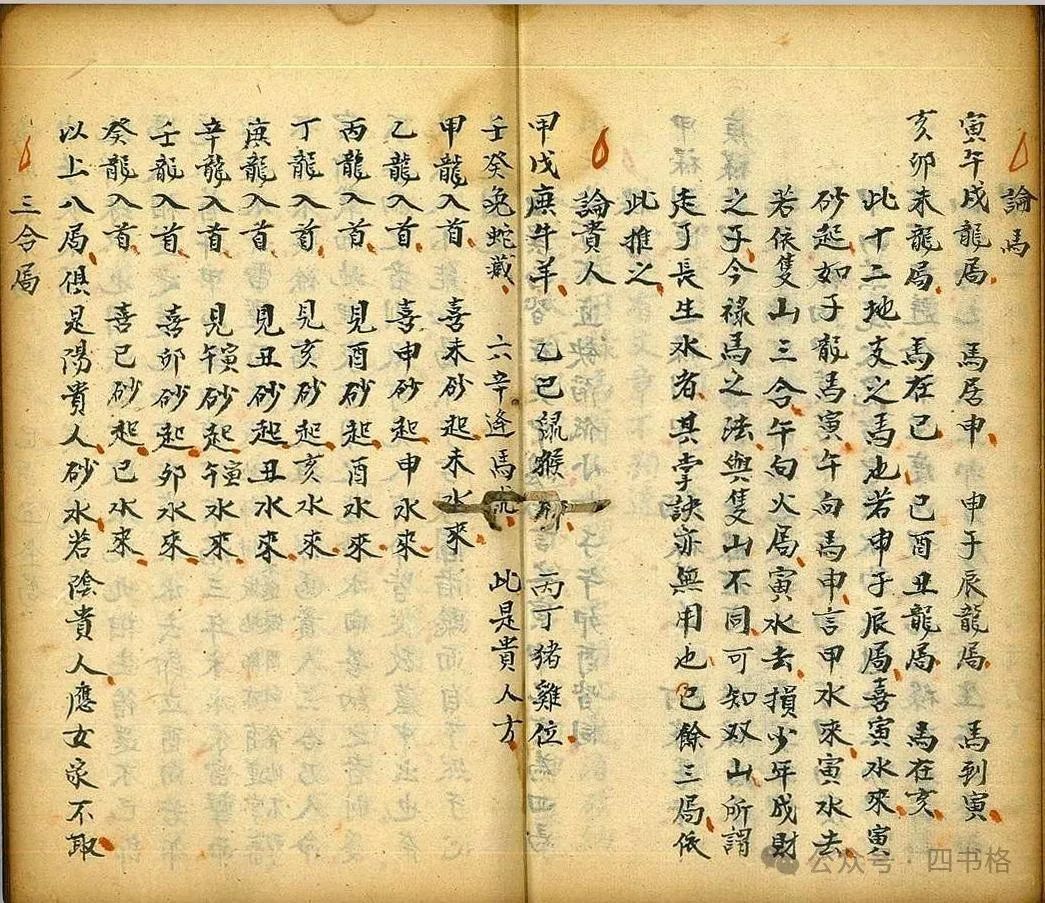 論馬
寅午戌龍局 馬居申 申子辰龍局 馬到寅
亥卯未龍局 馬在巳 巳酉丑龍局 馬在亥
此十二地支之馬也若申子辰局喜寅水來寅
砂起如子龍馬寅午向馬申言甲水來寅水去
若依隻山三合午向火局寅水去損少年成財
之子今祿馬之法與隻山不同可知双山所謂
走了長生水者其掌訣亦無用也已餘三局依
此推之
論貴人
甲戊庚牛羊 乙己鼠猴 丙丁猪雞位
壬癸兔蛇藏 六辛逢馬虎 此是貴人方
甲龍入首 喜未砂起未水來
乙龍入首 喜申砂起申水來
丙龍入首 見酉砂起酉水來
丁龍入首 見亥砂起亥水來
庚龍入首 見丑砂起丑水來
辛龍入首 見午寅砂起午寅水來
壬龍入首 喜卯砂起卯水來
癸龍入首 喜巳砂起巳水來
以上八局俱是陽貴人砂水若陰貴人應女家不取
三合局
公众号·四书格